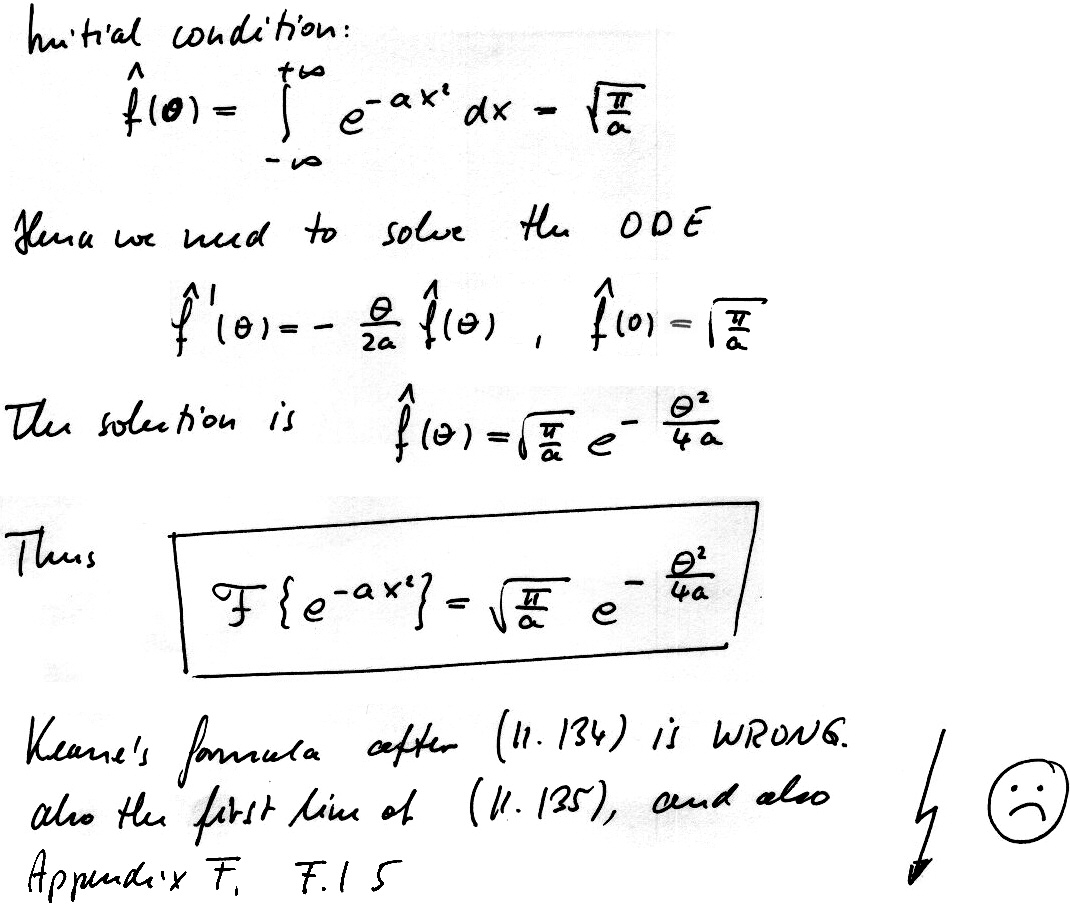 Initial condition:
f̂(0) = ∫_{-∞}^{+∞} e^{-ax²} dx = √(π/a)
Hence we need to solve the ODE
f̂'(θ) = - θ/2a f̂(θ) , f̂(0) = √(π/a)
The solution is f̂(θ) = √(π/a) e^{- θ²/4a}
Thus
F{e^{-ax²}} = √(π/a) e^{- θ²/4a}
Keane's formula after (11.134) is WRONG.
also the first line of (11.135), and also
Appendix F, F.15